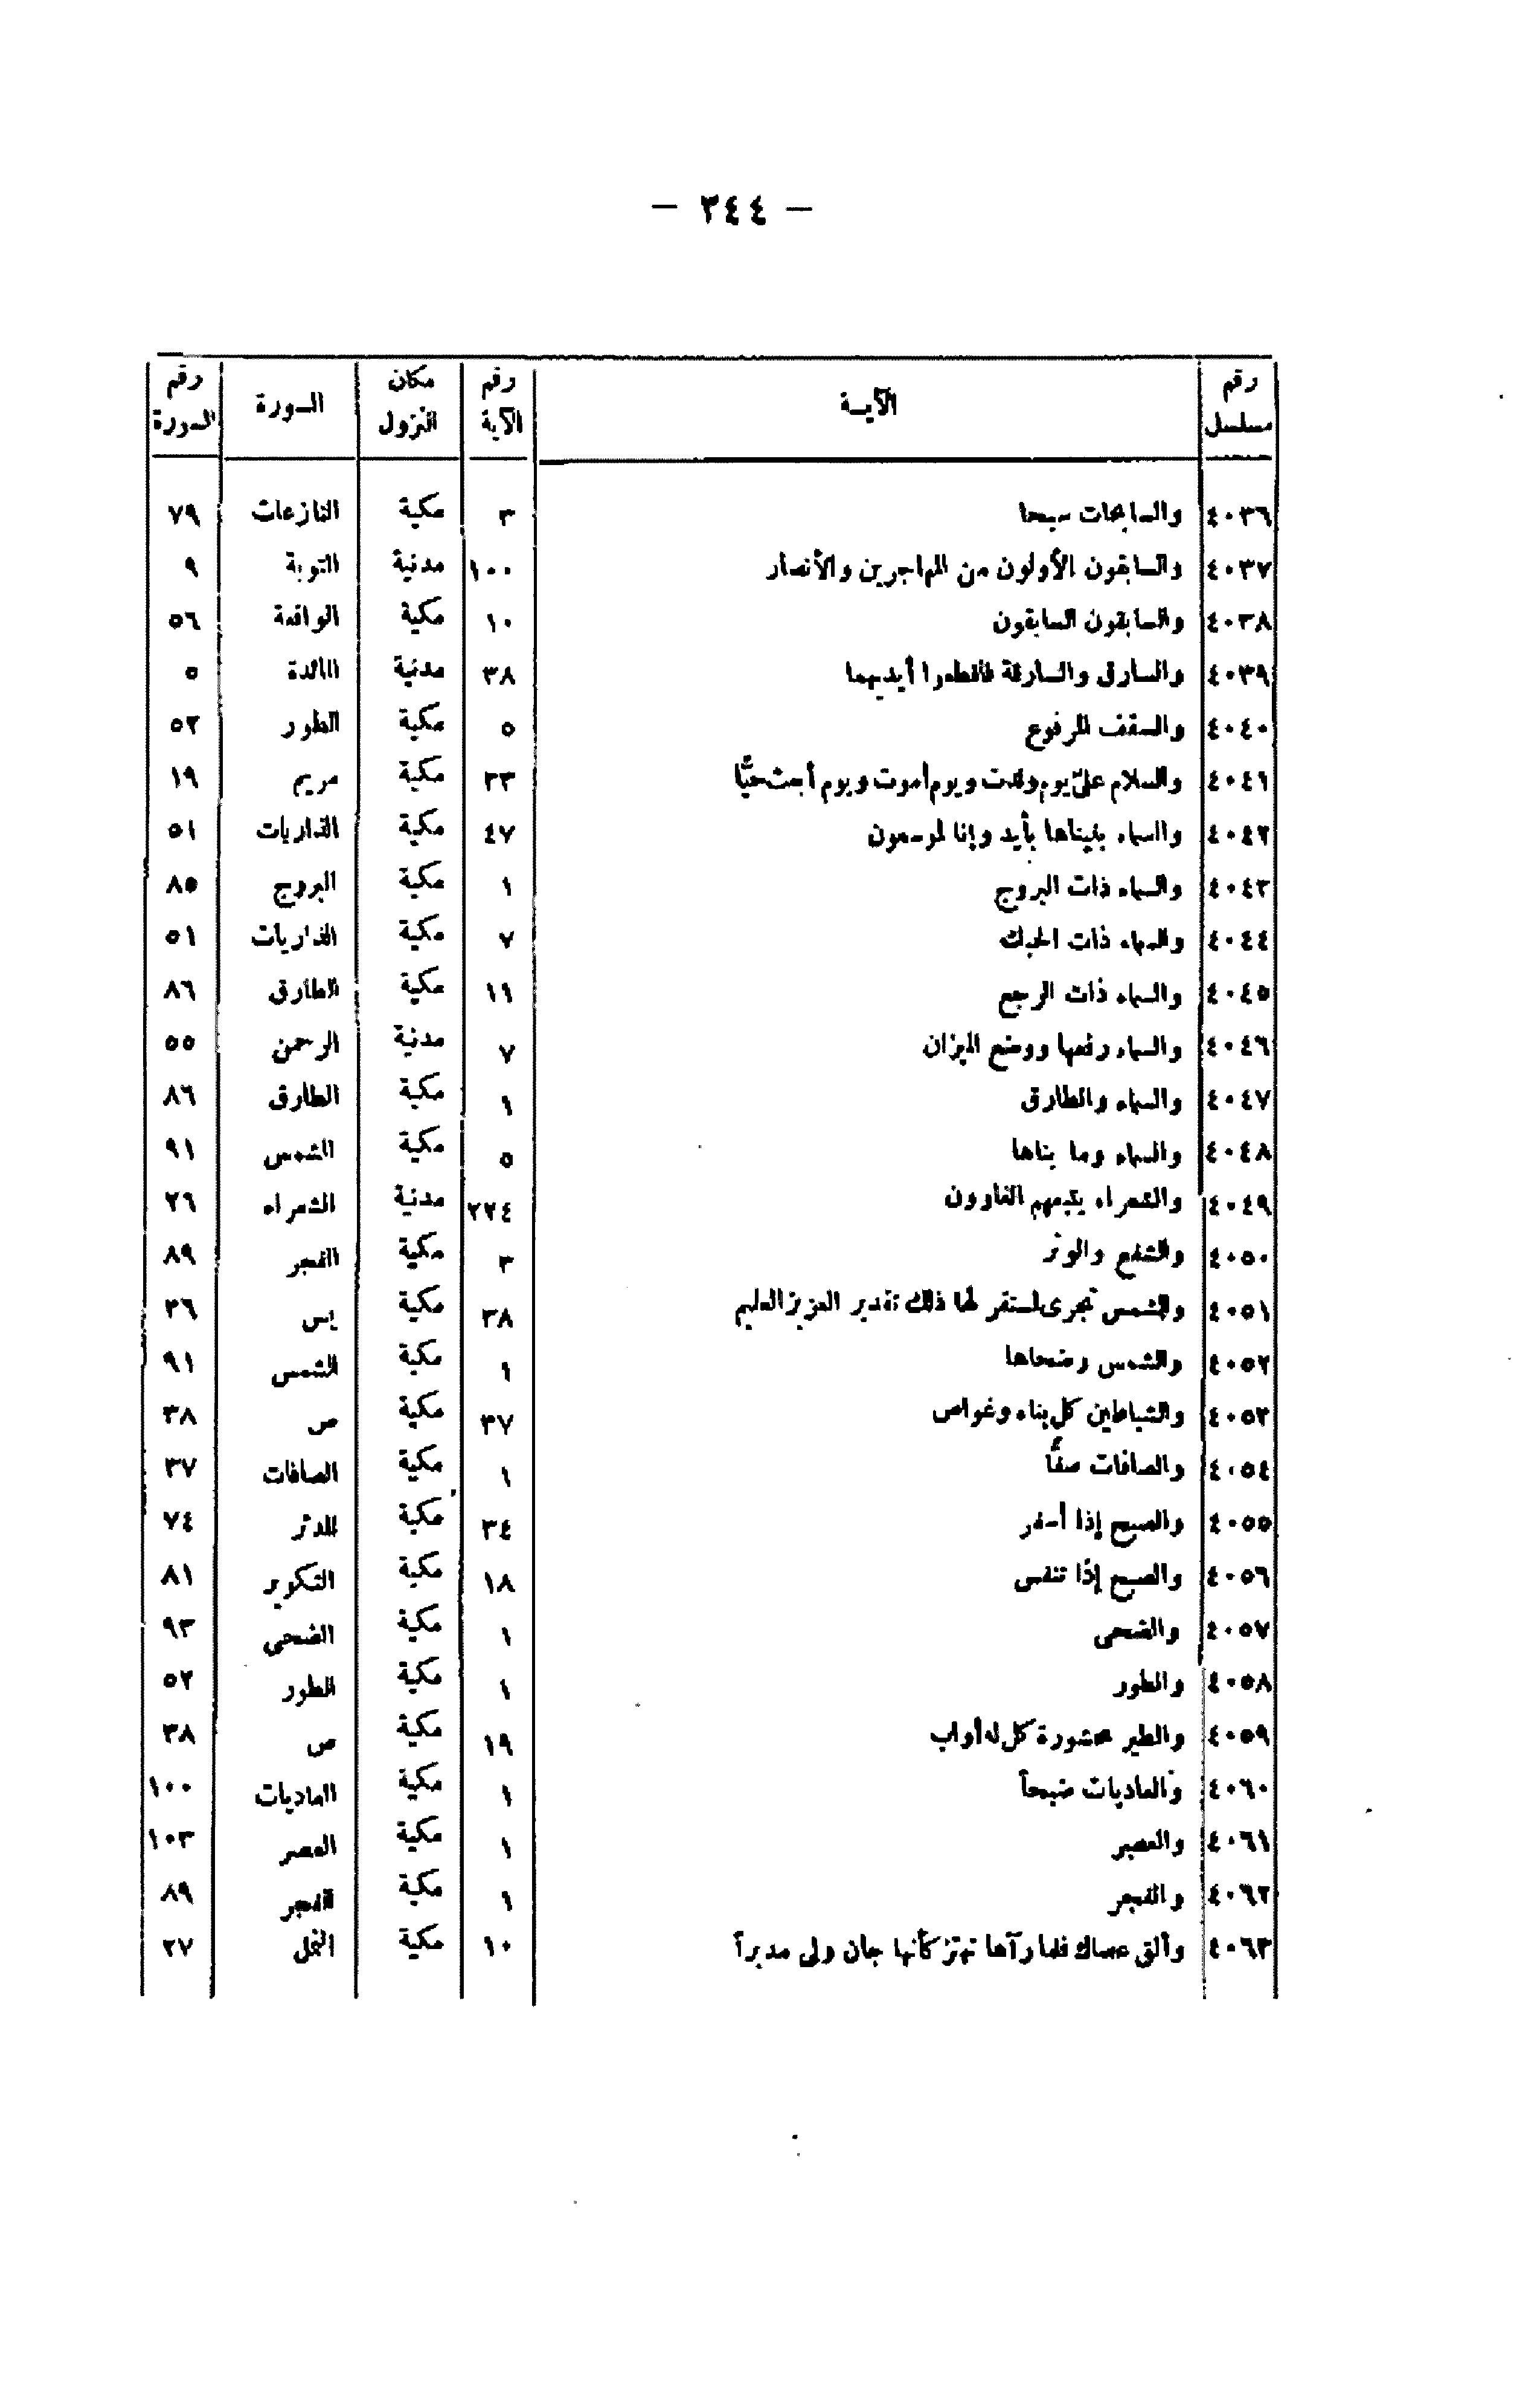 — ٣٤٤ —
رقم مسلسل | الآيـــة | رقم الآية | مكان النزول | السورة | رقم السورة
٤٠٣٦ | والسابحات سبحا | ٣ | مكية | النازعات | ٧٩
٤٠٣٧ | والسابقون الأولون من المهاجرين والأنصار | ١٠٠ | مدنية | التوبة | ٩
٤٠٣٨ | والسابقون السابقون | ١٠ | مكية | الواقعة | ٥٦
٤٠٣٩ | والسارق والسارقة فاقطعوا أيديهما | ٣٨ | مدنية | المائدة | ٥
٤٠٤٠ | والسقف المرفوع | ٥ | مكية | الطور | ٥٢
٤٠٤١ | والسلام علىّ يوم ولدت ويوم أموت ويوم أبعث حيًّا | ٣٣ | مكية | مريم | ١٩
٤٠٤٢ | والسماء بنيناها بأيد وإنا لموسعون | ٤٧ | مكية | الذاريات | ٥١
٤٠٤٣ | والسماء ذات البروج | ١ | مكية | البروج | ٨٥
٤٠٤٤ | والسماء ذات الحبك | ٧ | مكية | الذاريات | ٥١
٤٠٤٥ | والسماء ذات الرجع | ١١ | مكية | الطارق | ٨٦
٤٠٤٦ | والسماء رفعها ووضع الميزان | ٧ | مدنية | الرحمن | ٥٥
٤٠٤٧ | والسماء والطارق | ١ | مكية | الطارق | ٨٦
٤٠٤٨ | والسماء وما بناها | ٥ | مكية | الشمس | ٩١
٤٠٤٩ | والشعراء يتبعهم الغاوون | ٢٢٤ | مدنية | الشعراء | ٢٦
٤٠٥٠ | والشفع والوتر | ٣ | مكية | الفجر | ٨٩
٤٠٥١ | والشمس تجرى لمستقر لها ذلك تقدير العزيز العليم | ٣٨ | مكية | يس | ٣٦
٤٠٥٢ | والشمس وضحاها | ١ | مكية | الشمس | ٩١
٤٠٥٣ | والشياطين كل بناء وغواص | ٣٧ | مكية | ص | ٣٨
٤٠٥٤ | والصافات صفًّا | ١ | مكية | الصافات | ٣٧
٤٠٥٥ | والصبح إذا أسفر | ٣٤ | مكية | المدثر | ٧٤
٤٠٥٦ | والصبح إذا تنفس | ١٨ | مكية | التكوير | ٨١
٤٠٥٧ | والضحى | ١ | مكية | الضحى | ٩٣
٤٠٥٨ | والطور | ١ | مكية | الطور | ٥٢
٤٠٥٩ | والطير محشورة كل له أواب | ١٩ | مكية | ص | ٣٨
٤٠٦٠ | والعاديات ضبحاً | ١ | مكية | العاديات | ١٠٠
٤٠٦١ | والعصر | ١ | مكية | العصر | ١٠٣
٤٠٦٢ | والفجر | ١ | مكية | الفجر | ٨٩
٤٠٦٣ | وألق عصاك فلما رآها تهتز كأنها جان ولى مدبراً | ١٠ | مكية | النمل | ٢٧